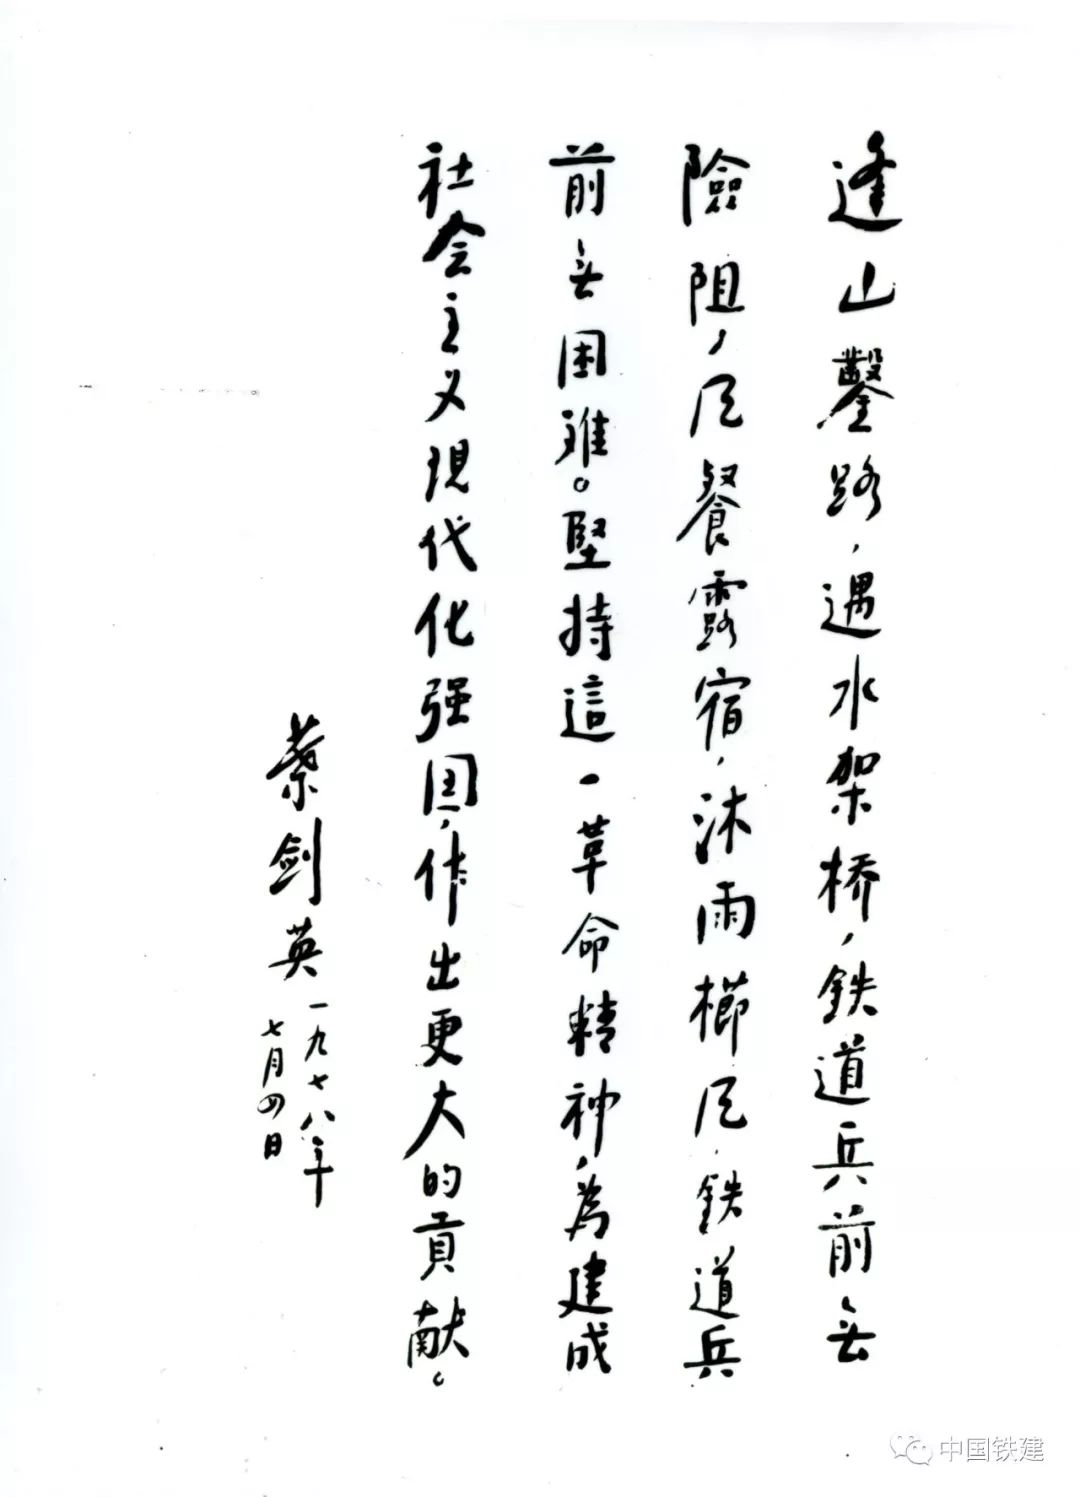 逢山鑿路，遇水架桥，鉄道兵前无
險阻，风餐露宿，沐雨櫛风，鉄道兵
前无困难。堅持這一革命精神，為建成
社会主义現代化强国，作出更大的貢献。
葉剑英
一九七八年
七月四日
中国铁建